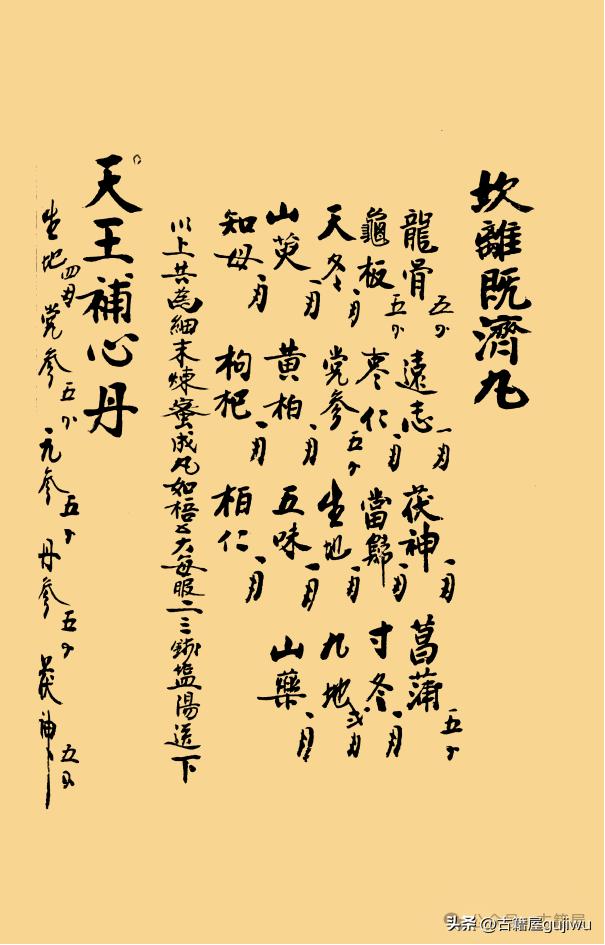 坎離既濟丸
龍骨五分 遠志一月 茯神一月 菖蒲五分
龜板五分 枣仁一月 當歸一月 寸冬一月
天冬一月 党參五分 生地一月 九地弍月
山萸一月 黄柏一月 五味一月 山藥一月
知母一月 枸杞一月 柏仁一月
以上共為細末煉蜜成丸如梧子大每服二三錢盐湯送下
天王補心丹
生地四月 党參五分 元參五分 丹參五分 茯神五分
头条 @古籍屋gujiwu